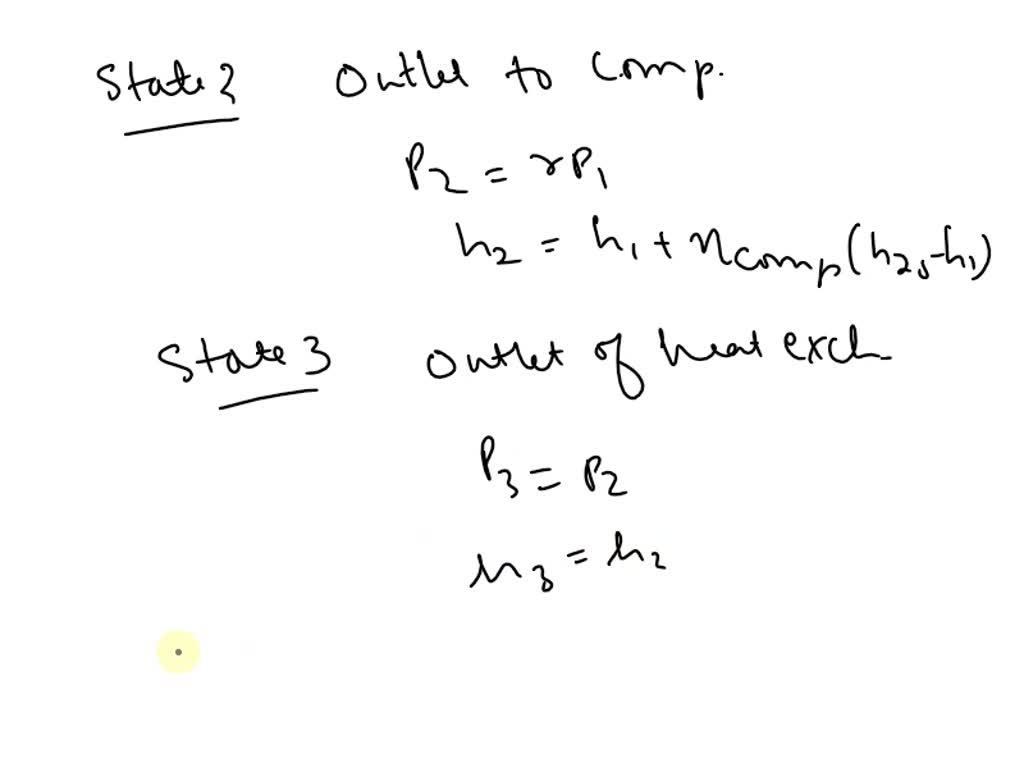 State 2 Outlet to Comp.
P2 = rP1
h2 = h1 + ηcomp(h2s-h1)
State 3 Outlet of heat exch
P3 = P2
h3 = h2